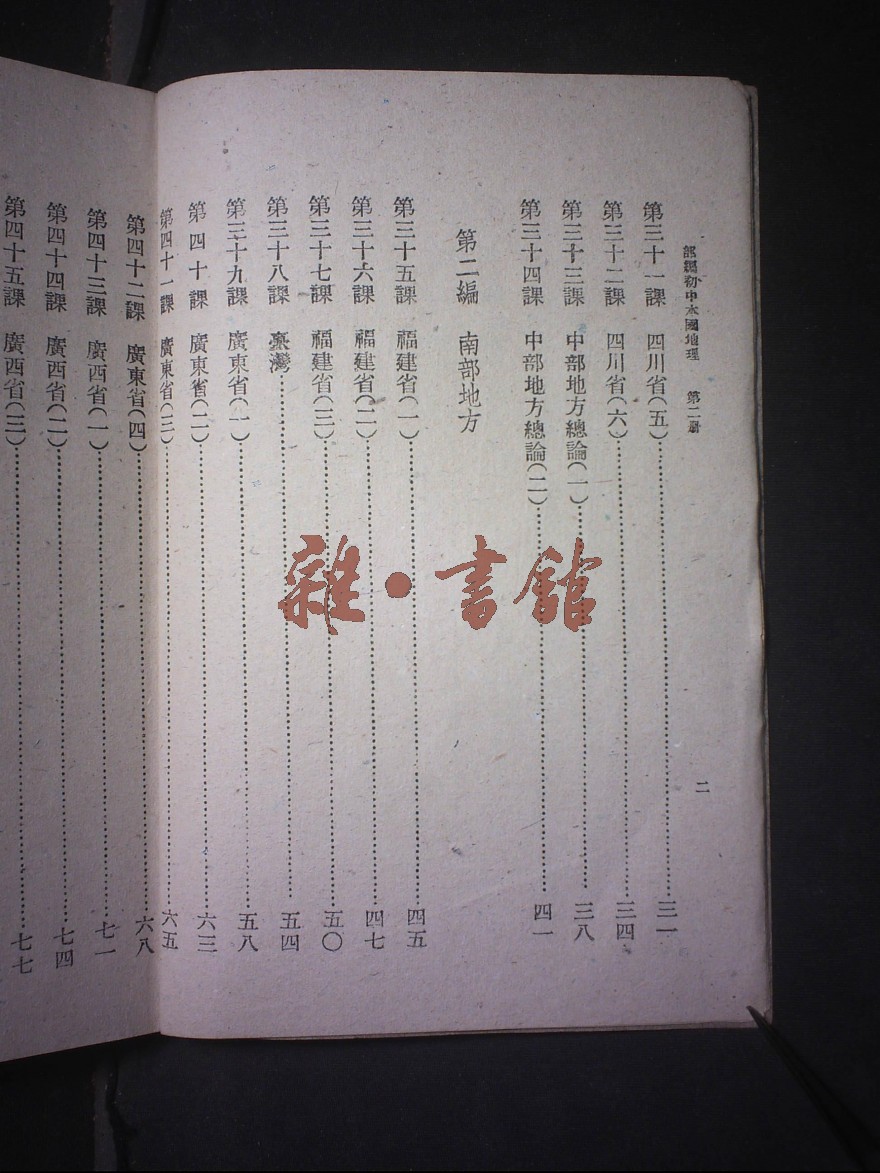 部編初中本國地理 第二册
二
第三十一課 四川省(五)……三一
第三十二課 四川省(六)……三四
第三十三課 中部地方總論(一)……三八
第三十四課 中部地方總論(二)……四一
第二編 南部地方
第三十五課 福建省(一)……四五
第三十六課 福建省(二)……四七
第三十七課 福建省(三)……五〇
第三十八課 臺灣……五四
第三十九課 廣東省(一)……五八
第四十課 廣東省(二)……六三
第四十一課 廣東省(三)……六五
第四十二課 廣東省(四)……六八
第四十三課 廣西省(一)……七一
第四十四課 廣西省(二)……七四
第四十五課 廣西省(三)……七七
雜·書館